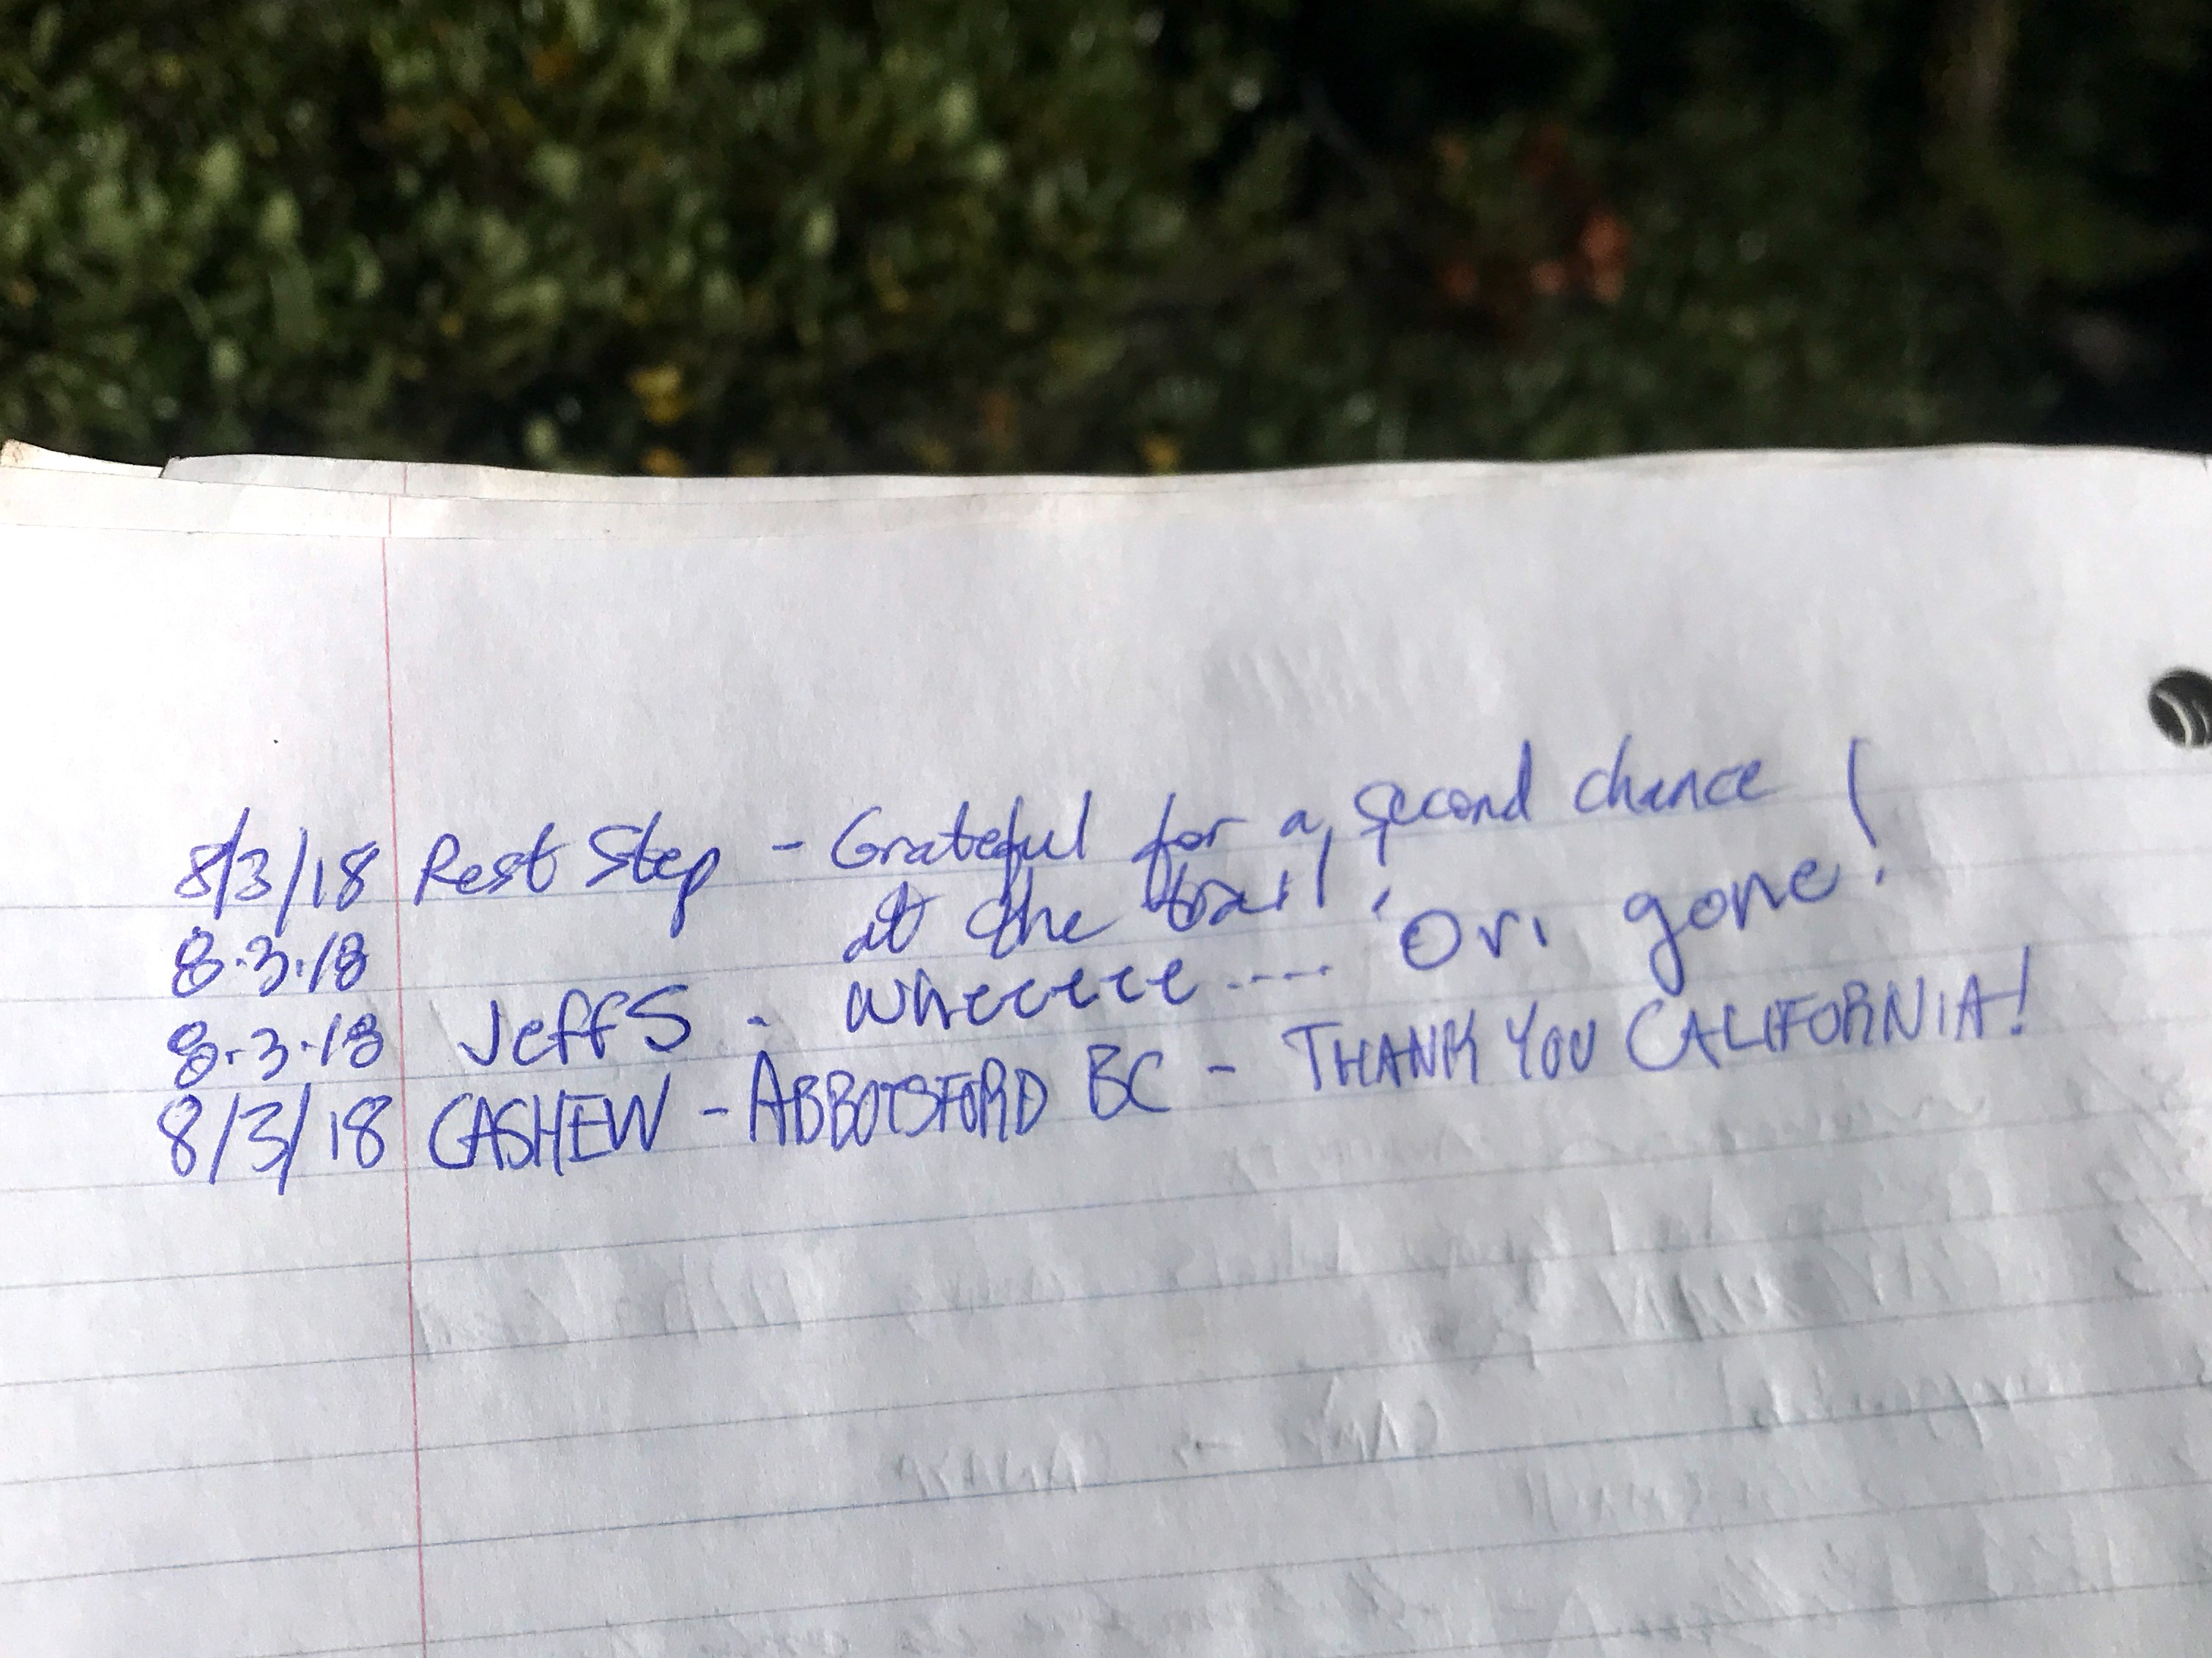 8/3/18 Rest Step - Grateful for a second chance
at the trail!
8.3.18
8.3.18 Jeff S - wheeeee.... Ori gone!
8/3/18 CASHEW - ABBOTSFORD BC - THANK YOU CALIFORNIA!